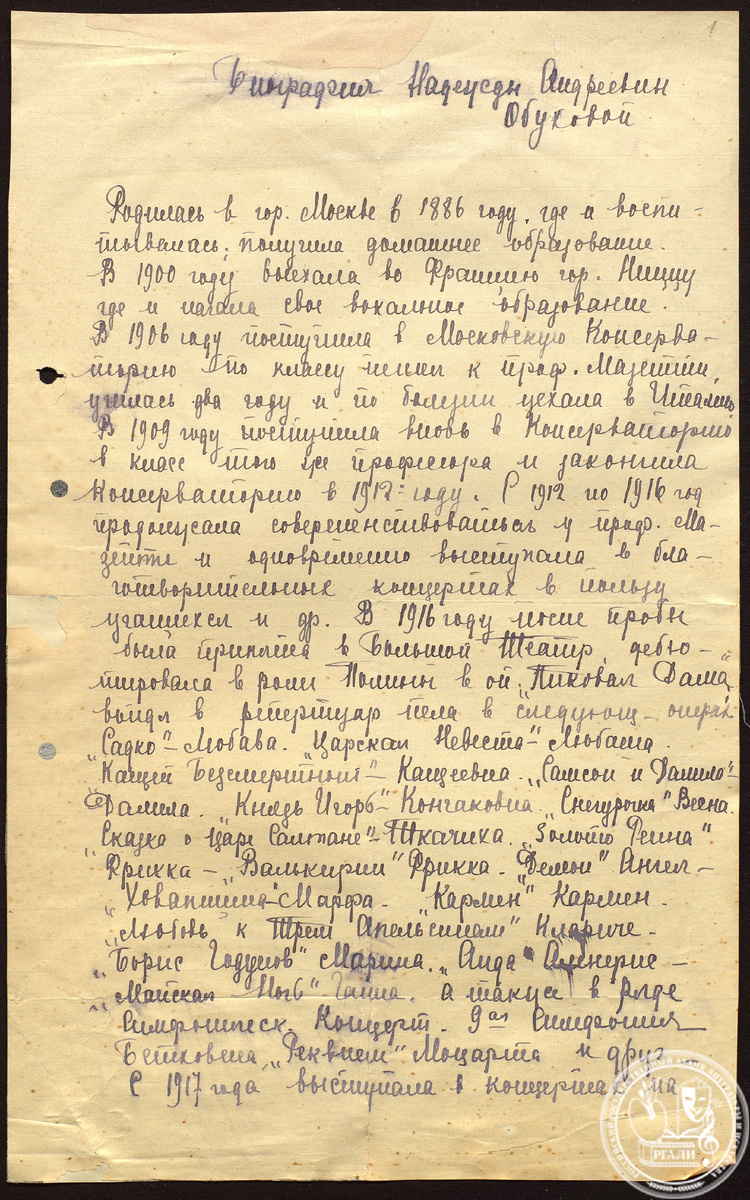 1
Биография Надежды Андреевны
Обуховой
Родилась в гор. Москве в 1886 году, где и воспи-
тывалась, получила домашнее образование.
В 1900 году выехала во Францию гор. Ниццу
где и начала свое вокальное образование.
В 1906 году поступила в Московскую Консерва-
торию по классу пения к проф. Мазетти,
училась два году и по болезни уехала в Италию
В 1909 году поступила вновь в Консерваторию
в класс того же профессора и закончила
Консерваторию в 1912 году. С 1912 по 1916 год
продолжала совершенствоваться у проф. Ма-
зетти и одновременно выступала в бла-
готворительных концертах в пользу
учащихся и др. В 1916 году после пробы
была принята в Большой Театр, дебю-
тировала в роли Полины в оп. „Пиковая Дама"
войдя в репертуар пела в следующ. операх
„Садко" – Любава. „Царская Невеста" – Любаша.
„Кащей Безсмертный" – Кащеевна. „Самсон и Далила" –
Далила. „Князь Игорь" – Кончаковна. „Снегурочка" Весна.
„Сказка о Царе Салтане" – Ткачиха. „Золото Рейна"
Фрикка – „Валькирии" Фрикка. „Демон" Ангел –
„Хованщина" – Марфа. „Кармен" Кармен.
„Любовь к Трем Апельсинам" Клариче –
„Борис Годунов" Марина. „Аида" Амнерис –
„Майская Ночь" Ганна. а также в ряде
Симфоническ. Концерт. 9ая Симфония
Бетховена, „Реквием" Моцарта и друг.
С 1917 года выступала в концертах на
РГАЛИ